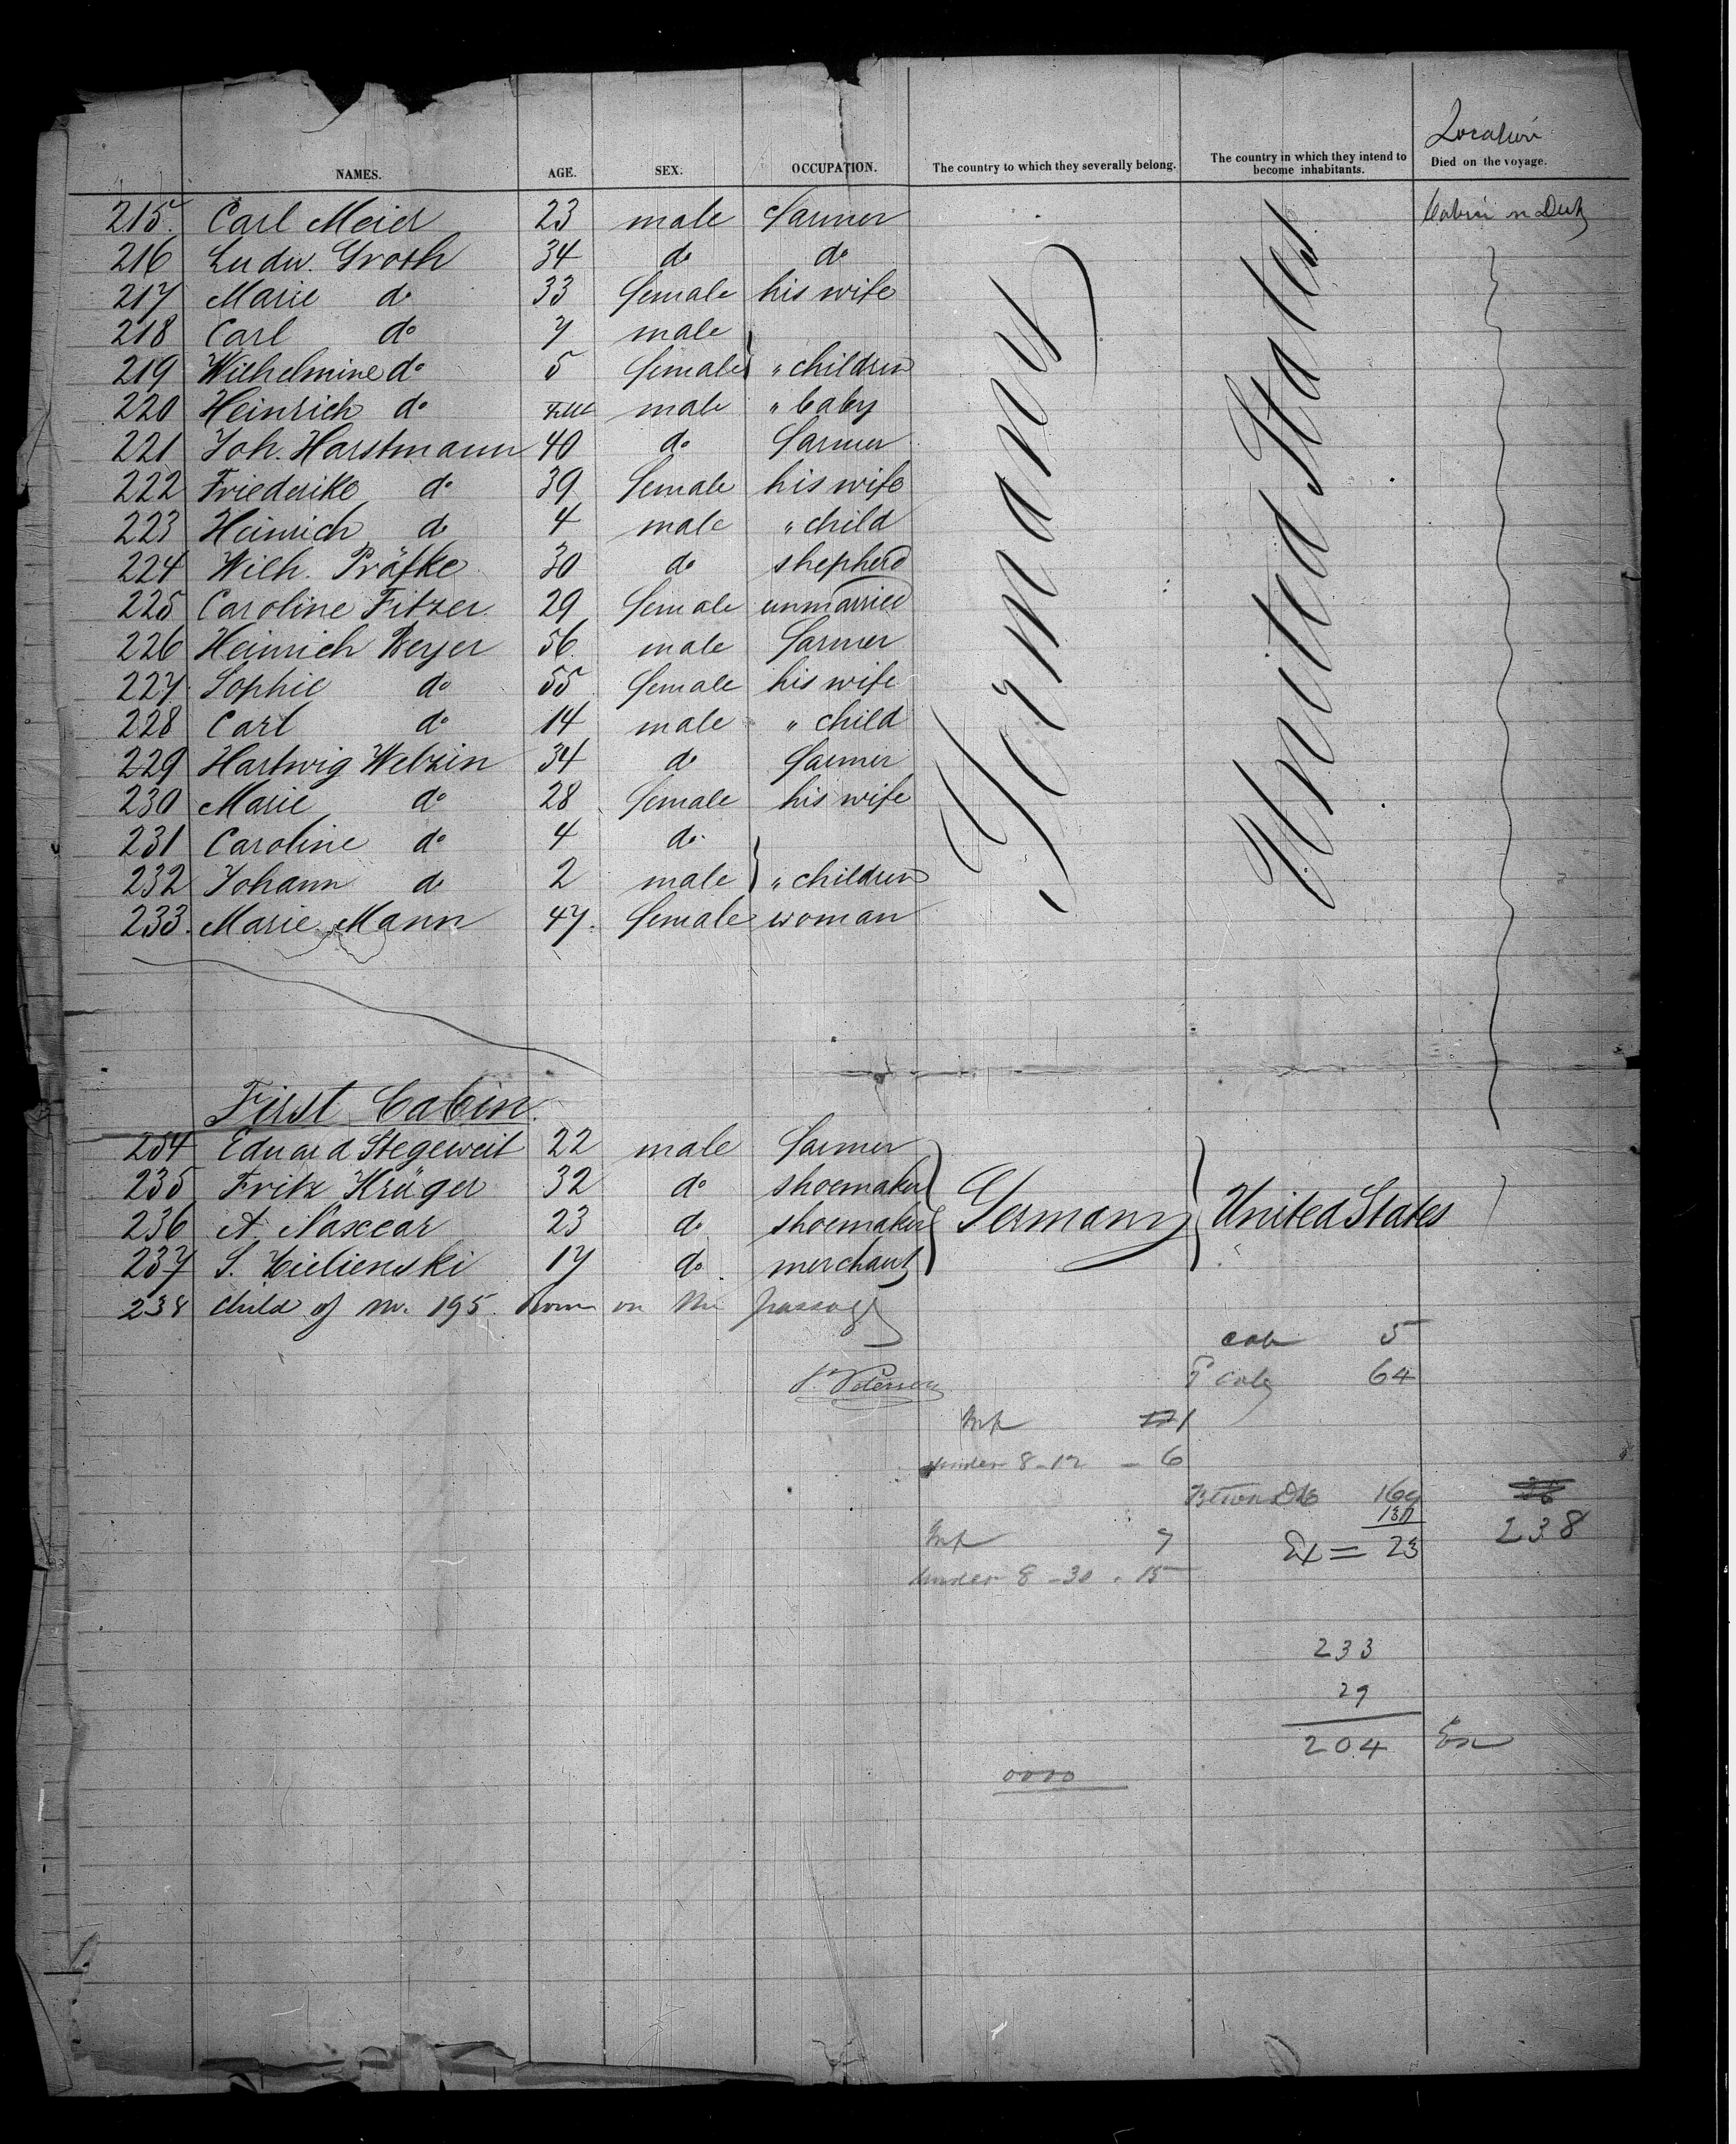 Location
NAMES. AGE. SEX. OCCUPATION. The country to which they severally belong. The country in which they intend to become inhabitants. Died on the voyage.
215. Carl Meier 23 male farmer
216 Ludw. Groth 34 do do
217 Marie do 33 female his wife
218 Carl do 7 male
219 Wilhelmine do 5 female " children
220 Heinrich do male " baby
221 Joh. Harstmann 40 do farmer
222 Friederike do 39 female his wife
223 Heinrich do 4 male " child
224 Wilh. Präfke 30 do shepherd
225 Caroline Fitzer 29 female unmarried
226 Heinrich Beyer 56 male farmer
227 Sophie do 55 female his wife
228 Carl do 14 male " child
229 Hartwig Webzin 34 do farmer
230 Marie do 28 female his wife
231 Caroline do 4 do
232 Johann do 2 male " children
233. Marie Mann 47. female woman
Germany
United States
First Cabin.
234 Eduard Stegeweit 22 male farmer
235 Fritz Krüger 32 do shoemaker
236 A. Naxcear 23 do shoemaker
237 S. Zielienski 17 do merchant
Germany United States
238 child of no. 195. born on the passage
cab 5
P. Petersen
64
under 8-12 - 6
238
7
Ex = 23
under 8 - 30 . 15
233
29
204
0000